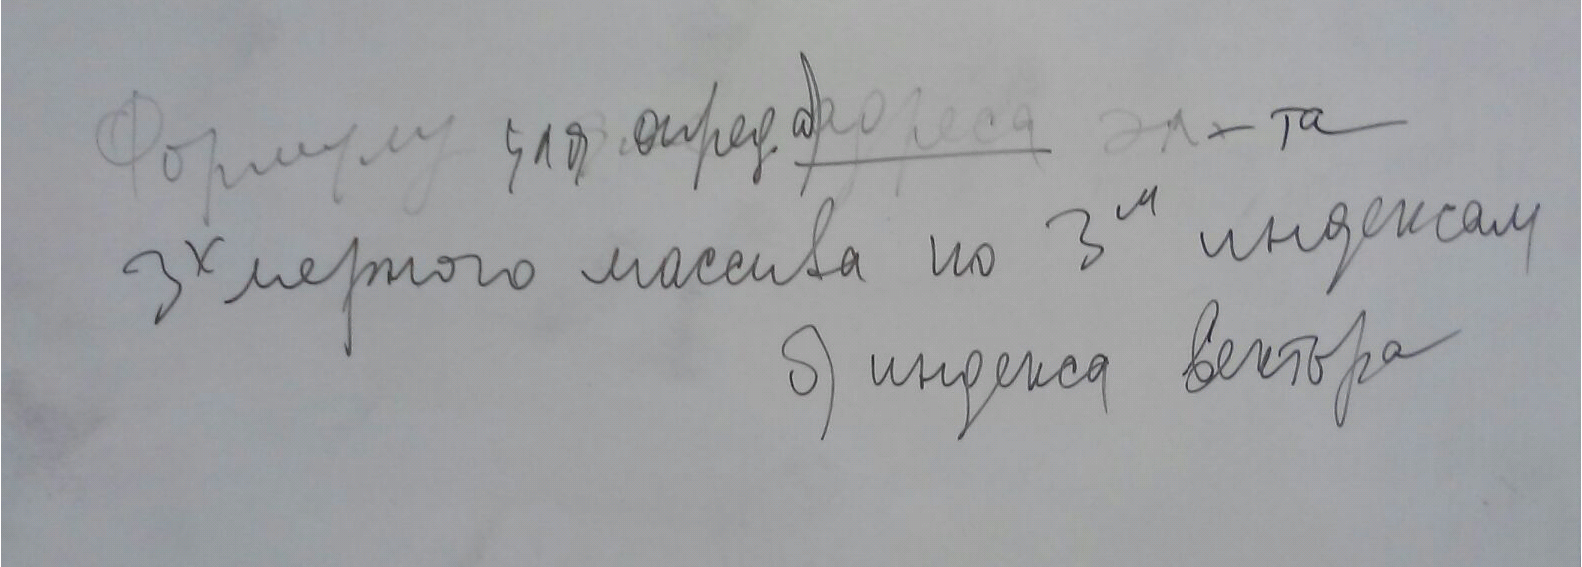 Формулу для опред. а) адреса эл-та
3х мерного массива по 3м индексам
б) индекса вектора